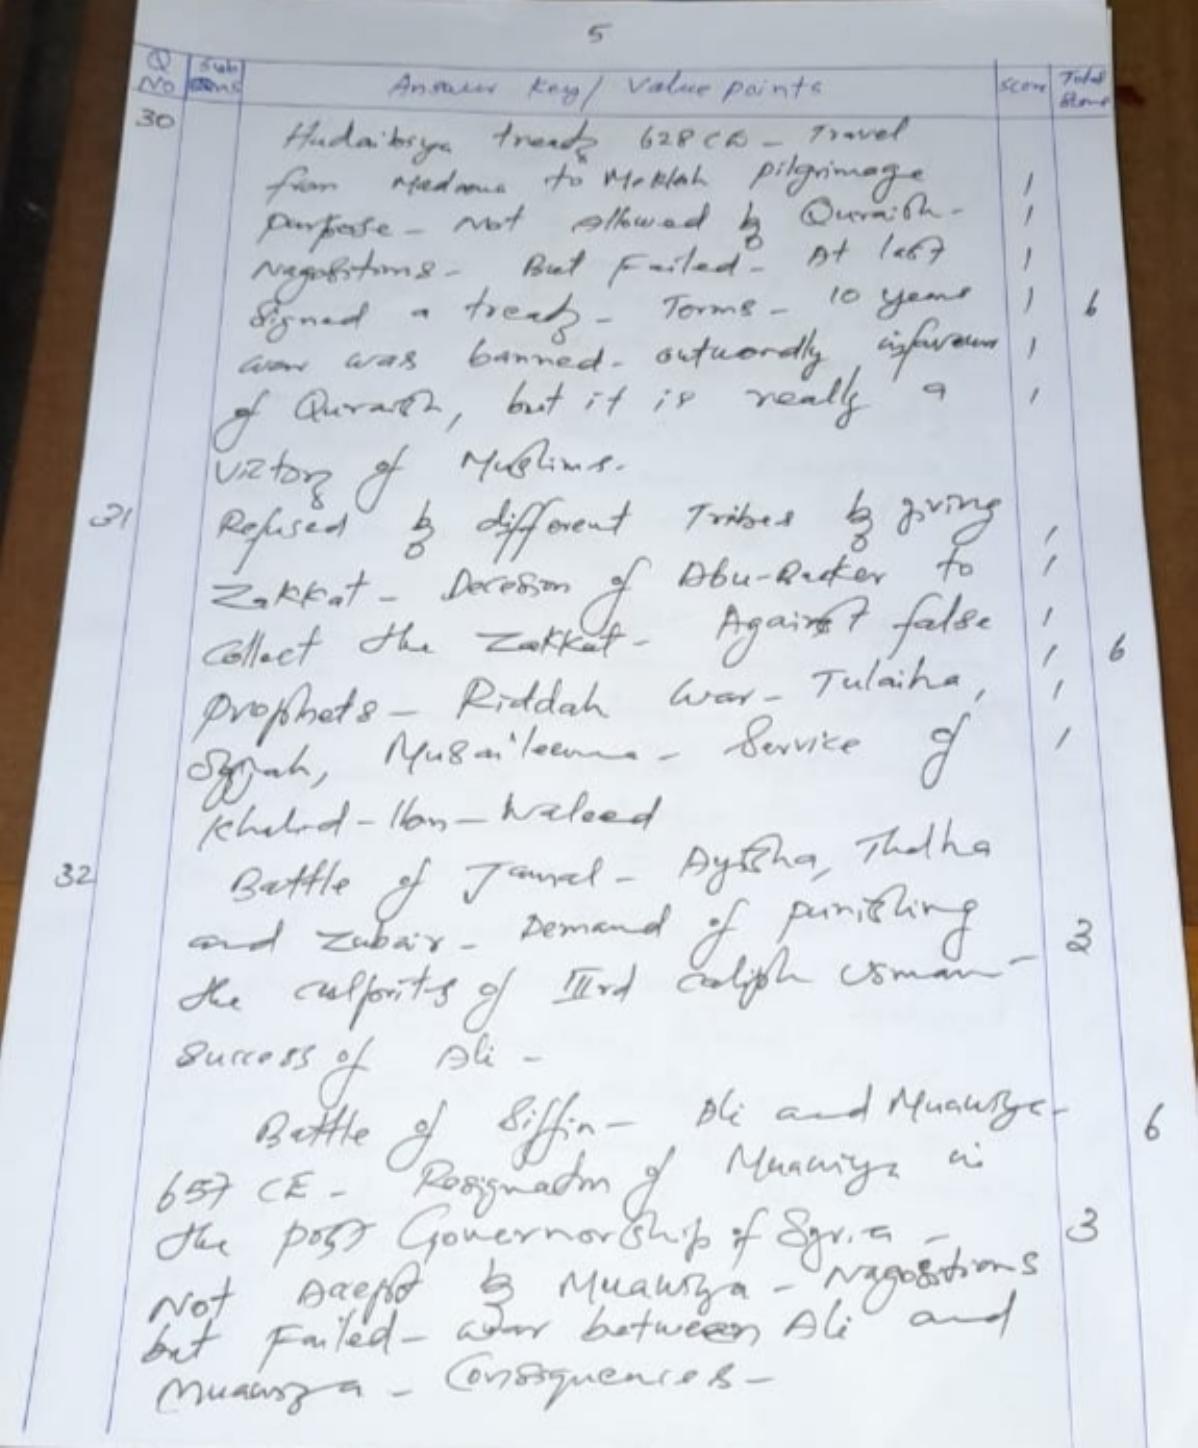 5
Q No Sub Qns Answer Key/ Value points Score Total Score
30 Hudaibiya treaty 628 CE - Travel
from Madeena to Makkah pilgrimage 1
purpose - Not Allowed by Quraish - 1
Nagositions - But Failed - At last 1
Signed a treaty - Terms - 10 years 1 6
war was banned - outwordly infavour 1
of Quraish, but it is really a 1
victory of Muslims.
31 Refused by different Tribes by giving 1
Zakkat - Decesion of Abu-Backer to 1
Collect the Zakkat - Against false 1
prophets - Riddah war - Tulaiha, 1 6
Sajjah, Musaileema - Service of 1
Khalid - Ibn - Waleed 1
32 Battle of Jamal - Ayisha, Thalha
and Zubair - Demand of punishing 3
the culprits of IIIrd caliph Usman -
Success of Ali -
Battle of Siffin - Ali and Muawiya - 6
657 CE - Resignation of Muawiya in
the post Governorship of Syria - 3
Not Accept by Muawiya - Nagositions
but Failed - war between Ali and
Muawiya - Consiquences -